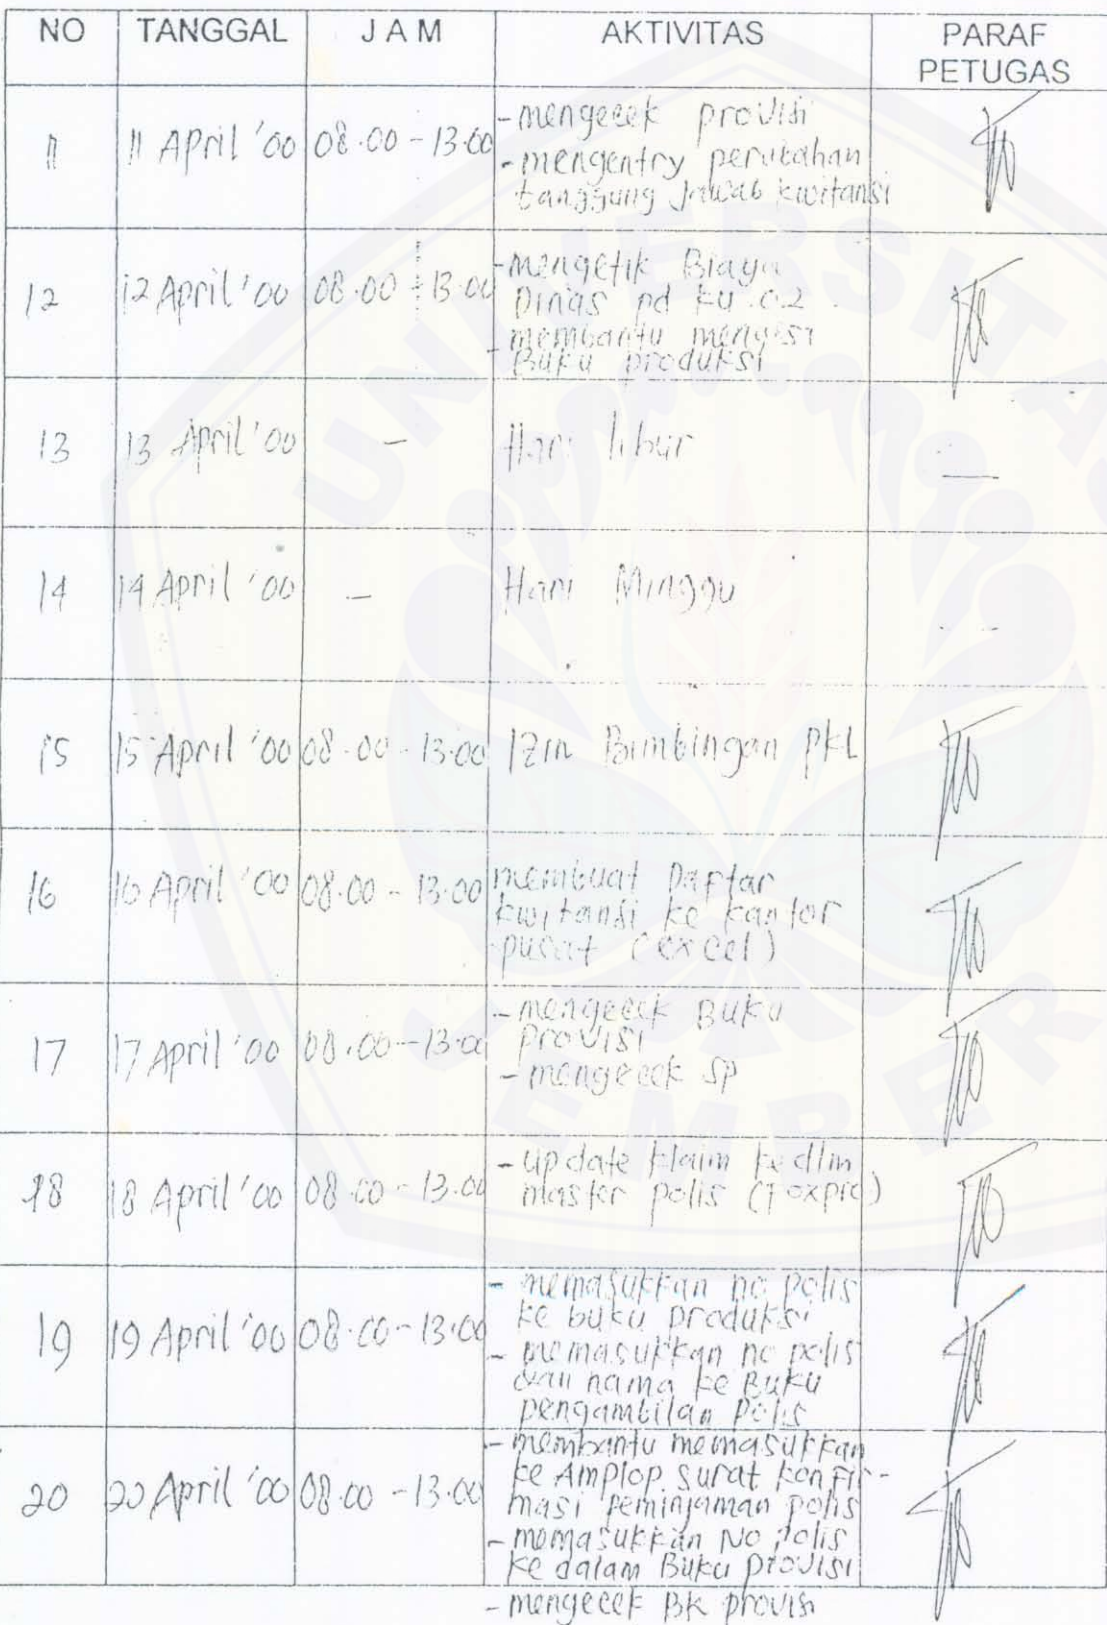 NO TANGGAL J A M AKTIVITAS PARAF
PETUGAS
11 11 April '00 08.00 - 13.00 - mengecek provisi
- mengentry perubahan
tanggung jawab kwitansi
12 12 April '00 08.00 - 13.00 - mengetik Biaya
Dinas pd ku.02
- membantu mengisi
Buku produksi
13 13 April '00 - Hari libur —
14 14 April '00 - Hari Minggu —
15 15 April '00 08.00 - 13.00 Izin Bimbingan PKL
16 16 April '00 08.00 - 13.00 membuat Daftar
kwitansi ke kantor
pusat (excel)
17 17 April '00 08.00 - 13.00 - mengecek Buku
provisi
- mengecek SP
18 18 April '00 08.00 - 13.00 - update klaim ke dlm
master polis
19 19 April '00 08.00 - 13.00 - memasukkan no polis
ke buku produksi
- memasukkan no polis
dan nama ke Buku
pengambilan polis
20 20 April '00 08.00 - 13.00 - membantu memasukkan
ke Amplop surat konfir-
masi peminjaman polis
- memasukkan No polis
ke dalam Buku provisi
- mengecek BK provisi
UNIVERSITAS
JEMBER